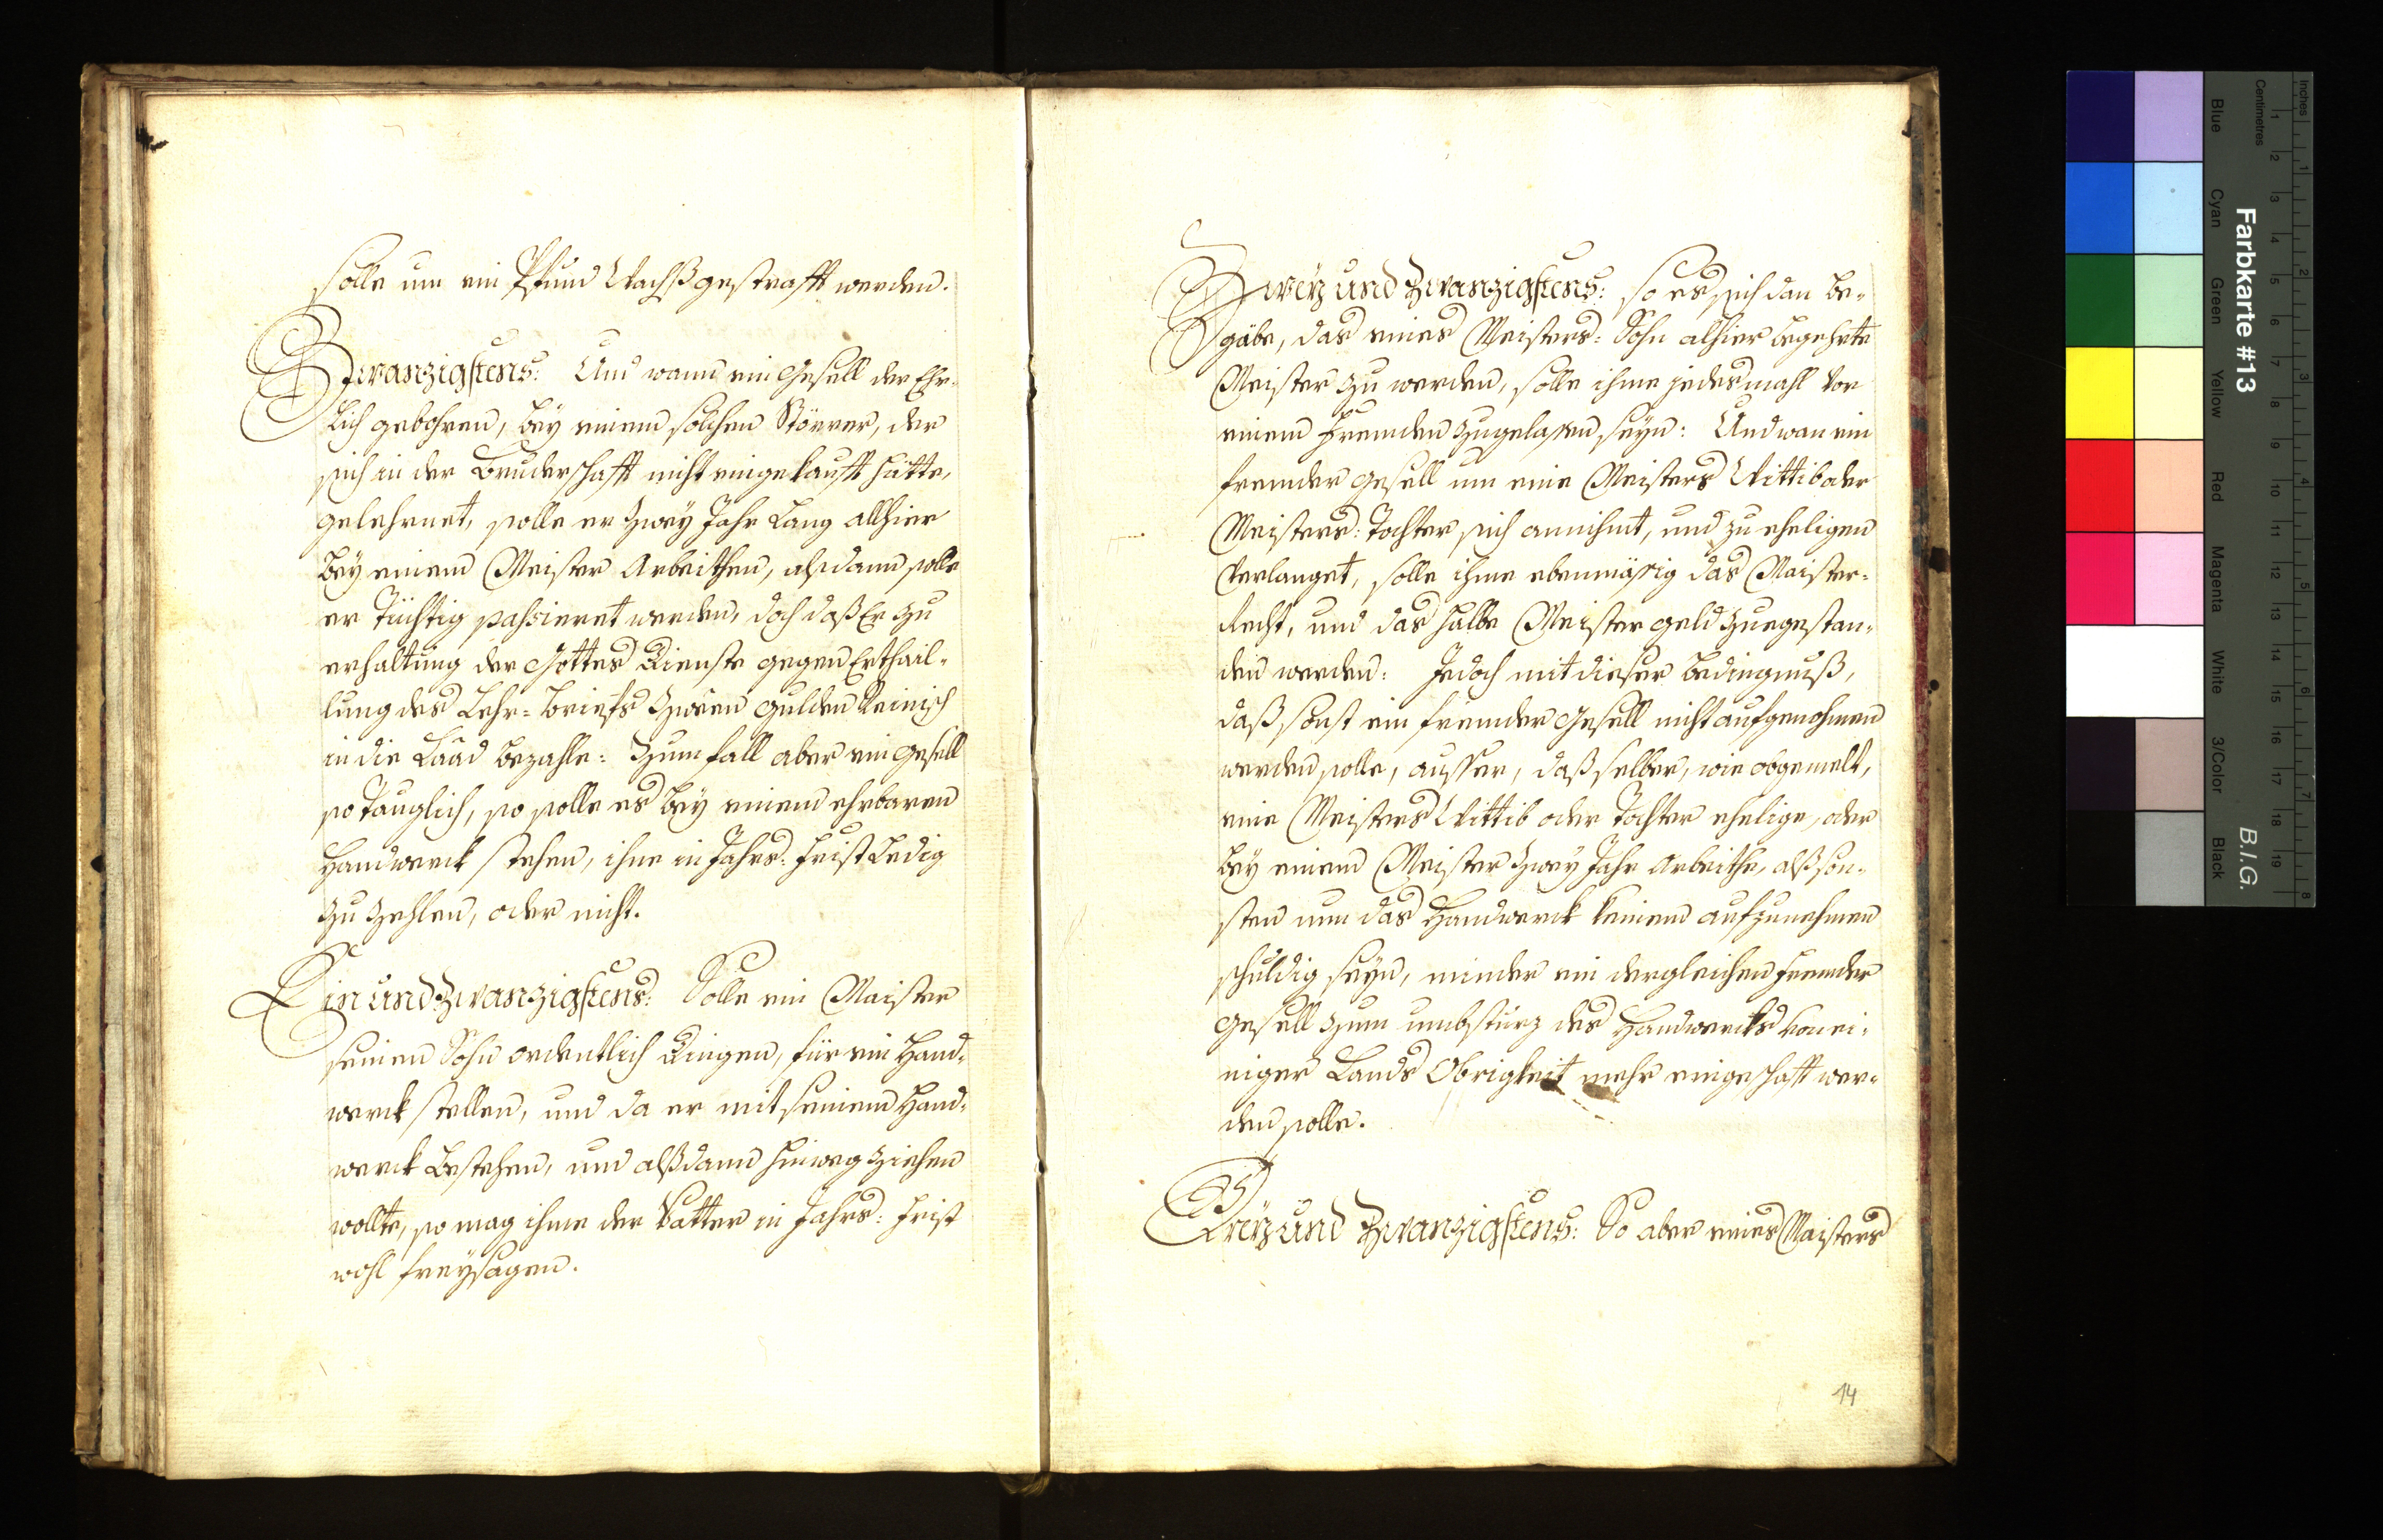 solle um ein Pfund Wachß gestrafft werden.
Zwanzigstens: Und wann ein Gesell der Ehr-
lich gebohren, bey einem solchen Störrer, der
sich in der Bruderschafft nicht eingekaufft hätte,
gelehrnet, solle er zwey Jahr Lang allhier
bey einem Meister Arbeithen, alsdann solle
er tüchtig passieret werden, doch daß Er zu
erhaltung der Gottes Dienste gegen Erthail-
lung des Lehr-Briefs zween gulden Reinisch
in die Laad bezahle: Zum fall aber ein gesell
so tauglich, so solle es bey einem ehrbaren
Handwerck stehen, ihne in Jahrs: frist Ledig
zu zehlen, oder nicht.
Ein und Zwanzigstens: Solle ein Maister
seinen Sohn ordentlich Dingen, für ein Hand-
werck stellen, und da er mit seinem Hand-
werck bestehen, und alßdann hinweg ziehen
wollte, so mag ihme der Vatter in Jahrs: frist
wohl freysagen.
Zweÿ und Zwanzigstens: so es sich dan be-
gäbe, das eines Meisters: Sohn alhier begehrte
Meister zu werden, solle ihme jedesmahl vor
einem Fremden zugelassen seyn: Und wan ein
fremder gesell um eine Meisters Wittib oder
Meisters: Tochter sich annihmt, und zu eheligen
verlanget, solle ihme ebenmäsig das Maister-
Recht, und das halbe Meister geld zuegestan-
den werden: Jedoch mit dieser bedingnuß,
daß sonst ein fremder gesell nicht aufgenohmen
werden solle, ausser, daß selber, wie obgemelt,
eine Meisters Wittib oder Tochter ehelige, oder
bey einem Meister zwey Jahr Arbeithe, alß son-
sten nun das Handwerck keinem aufzunehmen
schuldig seyn, minder ein dergleichen fremder
gesell zum umbsturz des Handwercks von ei-
niger Lands Obrigkeit mehr eingeschafft wer-
den solle.
Dreÿ und Zwanzigstens: So aber eines Maisters
14
Farbkarte #13
B.I.G.
Inches
Centimetres
1
2
3
4
5
6
7
8
9
10
11
12
13
14
15
16
17
18
19
1
2
3
4
5
6
7
8
Blue
Cyan
Green
Yellow
Red
Magenta
White
3/Color
Black